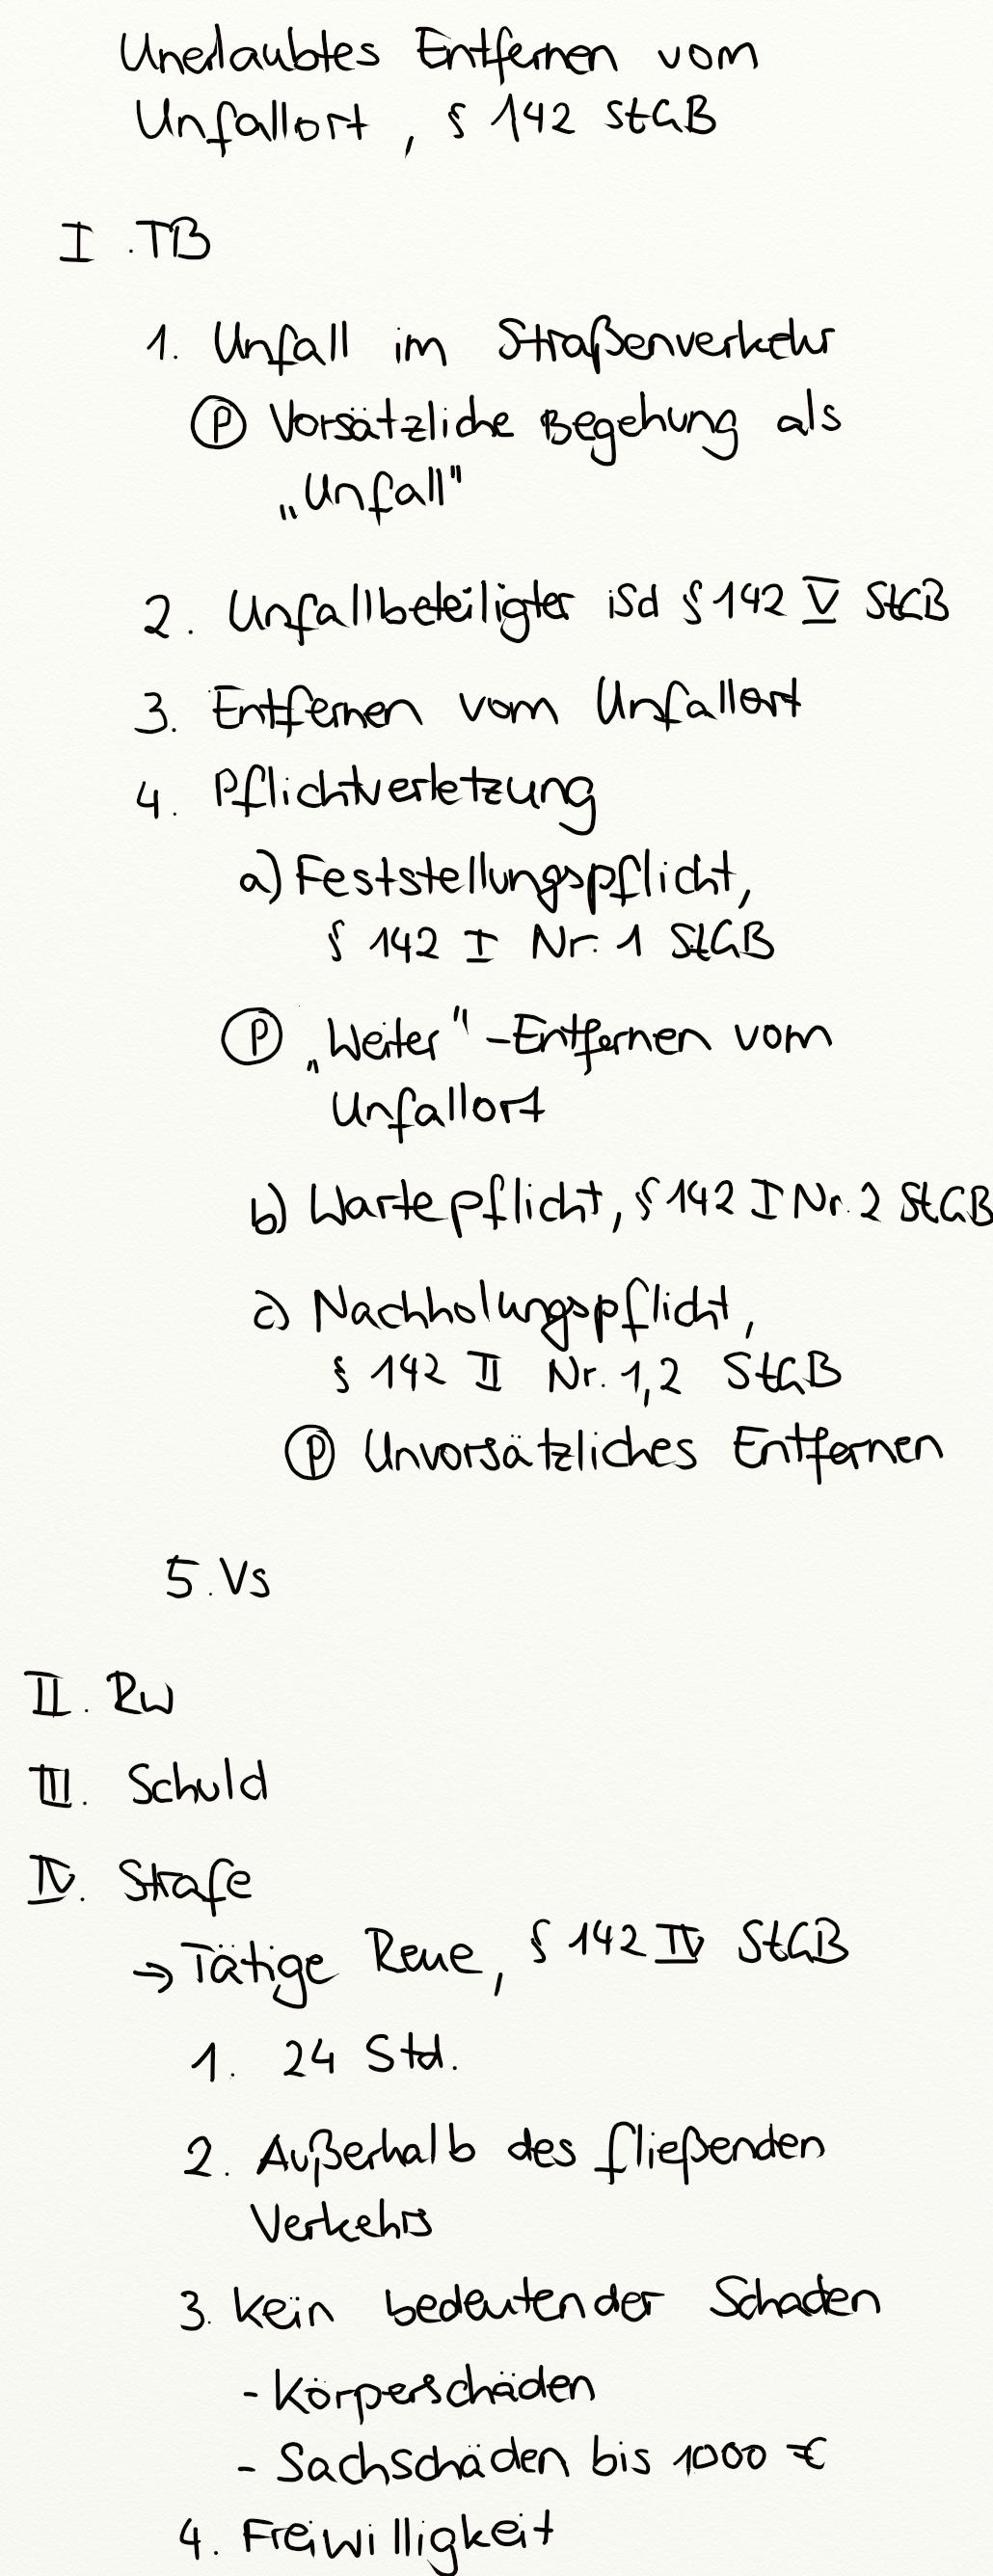 Unerlaubtes Entfernen vom
Unfallort, § 142 StGB
I. TB
1. Unfall im Straßenverkehr
Ⓟ Vorsätzliche Begehung als
„Unfall"
2. Unfallbeteiligter iSd § 142 V StGB
3. Entfernen vom Unfallort
4. Pflichtverletzung
a) Feststellungspflicht,
§ 142 I Nr. 1 StGB
Ⓟ „Weiter"-Entfernen vom
Unfallort
b) Wartepflicht, § 142 I Nr. 2 StGB
c) Nachholungspflicht,
§ 142 II Nr. 1,2 StGB
Ⓟ Unvorsätzliches Entfernen
5. Vs
II. RW
III. Schuld
IV. Strafe
→ Tätige Reue, § 142 IV StGB
1. 24 Std.
2. Außerhalb des fließenden
Verkehrs
3. kein bedeutender Schaden
- Körperschäden
- Sachschäden bis 1000 €
4. Freiwilligkeit